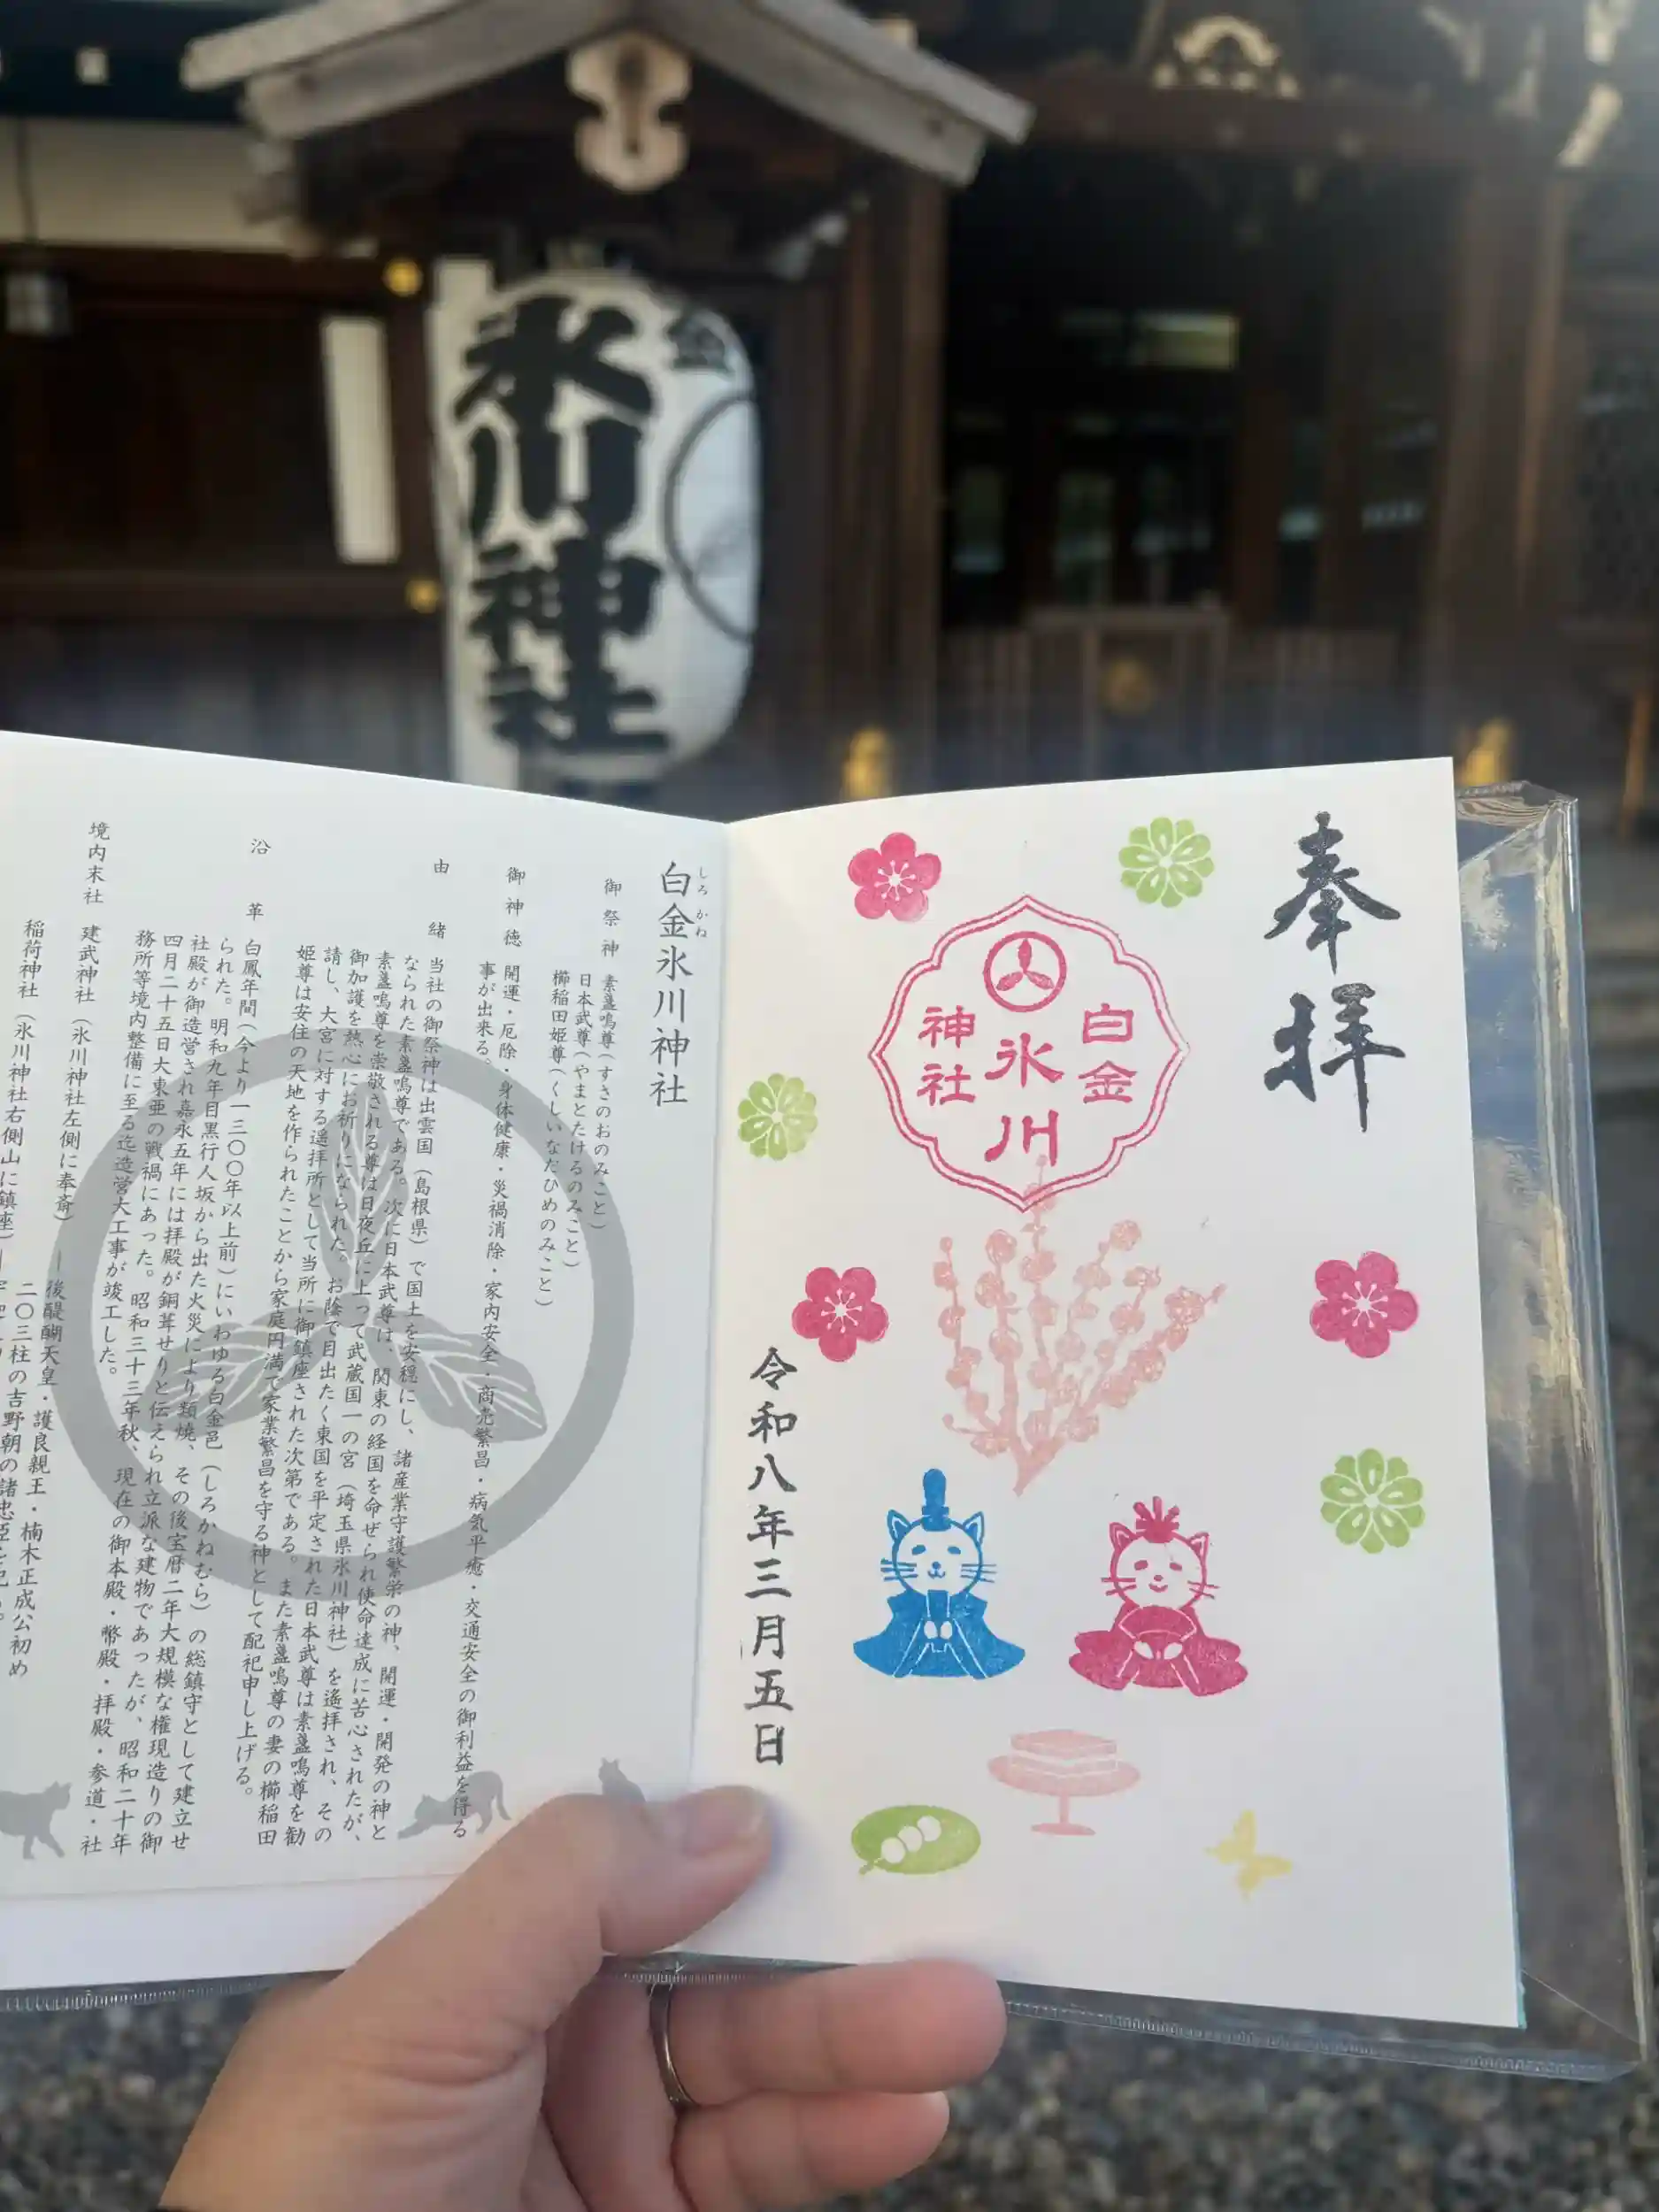 氷川神社
奉拝
白金
氷川
神社
令和八年三月五日
しろかね
白金氷川神社
御祭神
素盞嗚尊(すさのおのみこと)
日本武尊(やまとたけるのみこと)
櫛稲田姫尊(くしいなだひめのみこと)
御神徳
開運・厄除・身体健康・災禍消除・家内安全・商売繁昌・病気平癒・交通安全の御利益を得る
事が出来る。
由緒
当社の御祭神は出雲国(島根県)で国土を安穏にし、諸産業守護繁栄の神、開運・開発の神と
なられた素盞嗚尊である。次に日本武尊は、関東の経国を命ぜられ使命達成に苦心されたが、
素盞嗚尊を崇敬される尊は日夜丘に上って武蔵国一の宮(埼玉県氷川神社)を遙拝され、その
御加護を熱心にお祈りになられた。お陰で目出たく東国を平定された日本武尊は素盞嗚尊を勧
請し、大宮に対する遥拝所として当所に御鎮座された次第である。また素盞嗚尊の妻の櫛稲田
姫尊は安住の天地を作られたことから家庭円満で家業繁昌を守る神として配祀申し上げる。
沿革
白鳳年間(今より一三〇〇年以上前)にいわゆる白金邑(しろかねむら)の総鎮守として建立せ
られた。明和九年目黒行人坂から出た火災により類焼、その後宝暦二年大規模な権現造りの御
社殿が御造営され嘉永五年には拝殿が銅茸せりと伝えられ立派な建物であったが、昭和二十年
四月二十五日大東亜の戦禍にあった。昭和三十三年秋、現在の御本殿・幣殿・拝殿・参道・社
務所等境内整備に至る迄造営大工事が竣工した。
境内末社
建武神社(氷川神社左側に奉斎)―後醍醐天皇・護良親王・楠木正成公初め
二〇三柱の吉野朝の諸忠臣を祀る。
稲荷神社(氷川神社右側山に鎮座)